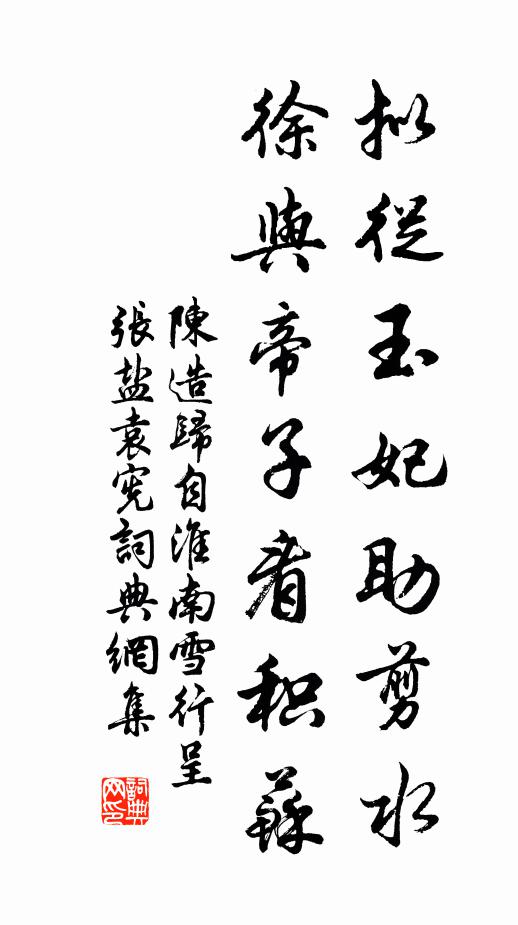 拟從玉妃助剪水
徐與帝子看积蘇
陳造歸自淮南雪行呈
張盐袁宪詞典網集
詞典
网印